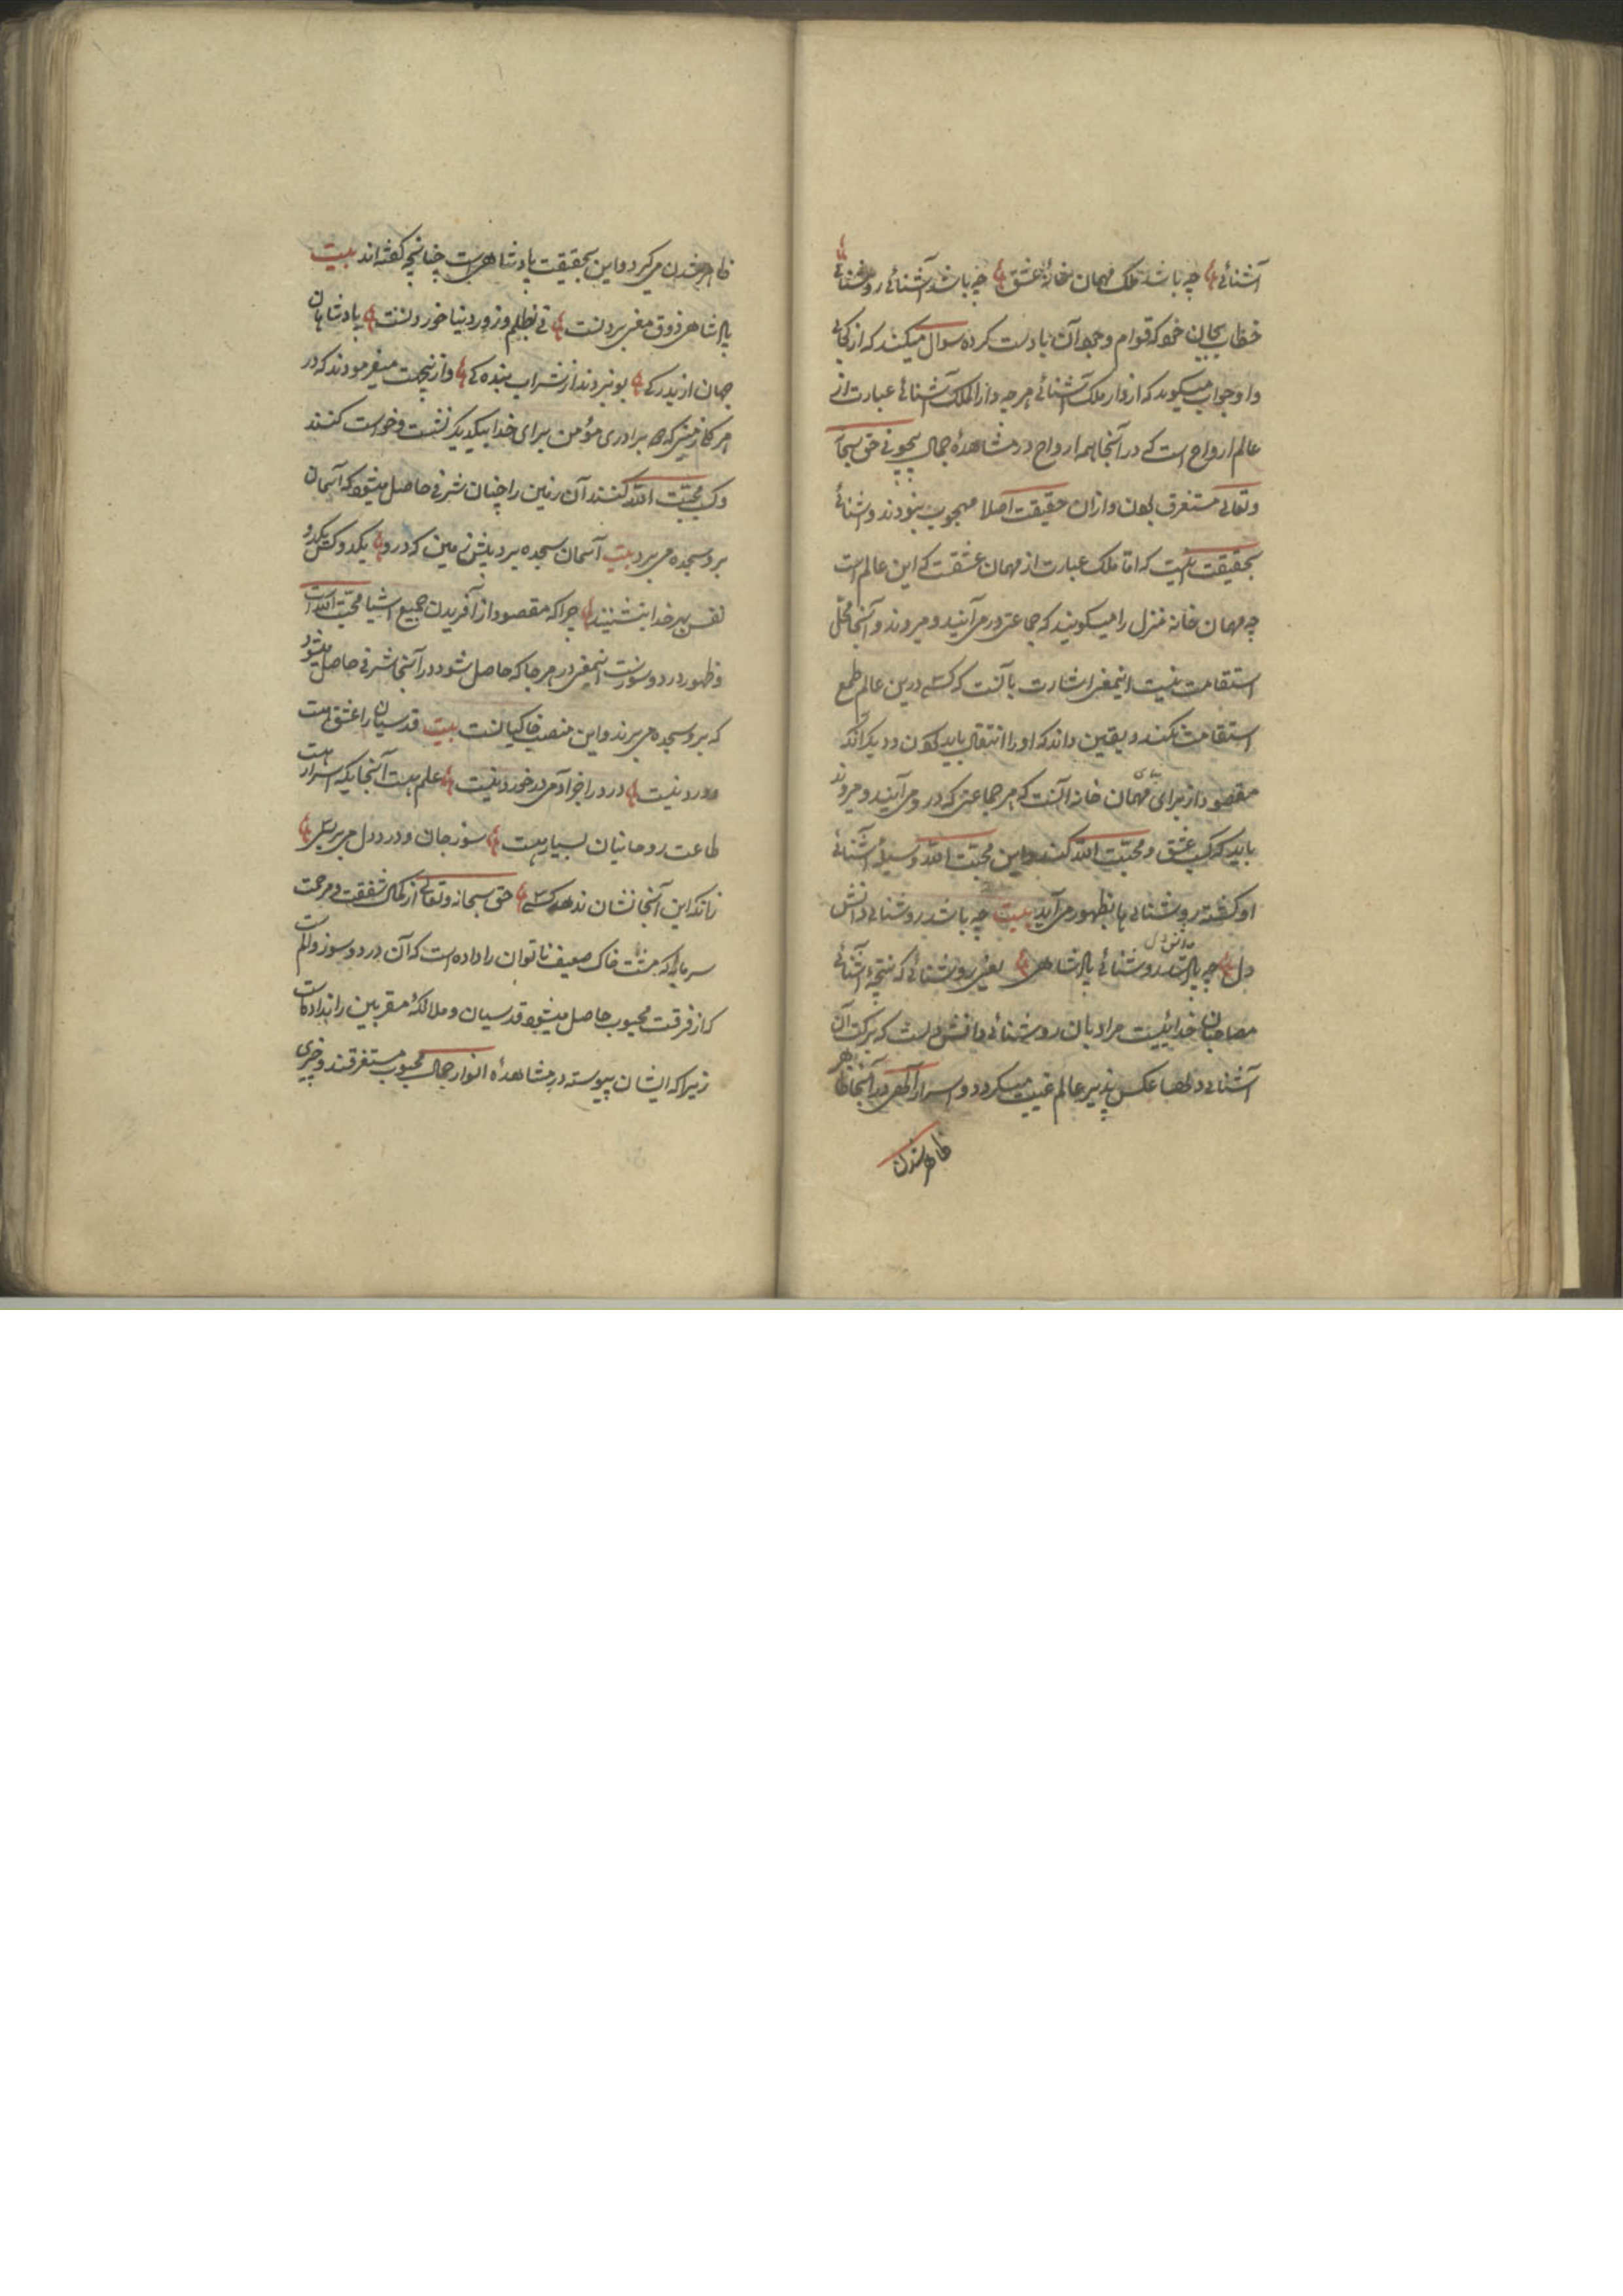 آشنائے چه باشد ملک مهمان خانهٔ عشق چه باشد آشنائے روشنائے
خطاب بجان خود که قوام وجود آن بادست کرده سوال میکند که از کجائی
و او جواب میگوید که از دار ملک آشنائے هرچه دار الملک آشنائے عبارت از
عالم ارواح است که در آنجا همه ارواح در مشاهدهٔ جمال بیچونے حق سبحانه
وتعالے مستغرق بودن و ازان حقیقت اصلا مهجوب نبودند و شنائے
بحقیقت اینست که اما ملک عبارت از مهمان عشقت که این عالم است
چه مهمان خانه منزل را میگویند که جماعتی در می آیند و میروند و آنجا محل
استقامت نیست اینمعنی اشارت بآنست که کسے درین عالم طمع
استقامت نکند و یقین داند که او را انتقال باید کردن و دیگر آنکه
مقصود از برای مهمان خانه آنست که هر جماعتی که در و می آیند و میروند
باید که کسب عشق و محبت الله کنند و این محبت الله وسیلهٔ آشنائے
او گشته بروشنائے ها بظهور می آید بیت چه باشد روشنائے دانش
دل چه باشد روشنائے پادشاهی یعنی روشنائے که نتیجهٔ آشنائے
مصاحبان خدائیست مراد بان روشنائے دانش دلست که ببرکت آن
آشنائے دلها عکس پذیر عالم غیبت میگردد و اسرار الهی در آنجا ظاهر
ظاهر شدن
ظاهر شدن میگیرد و این بحقیقت پادشاهیست چنانچه گفته اند بیت
پادشاهی ذوق معنی بردنست نے بظلم و زور دنیا خوردنست پادشاهان
جهان از بدرگے بو نبردند از شراب بندگے و ازینجهت میفرمودند که در
هر کار زمینی که دو برادری مؤمن برای خدا بیکدیگر نشست و خواست کنند
وکسب محبت الله کنند آن زمین را چنان شرفے حاصل میشود که آسمان
برو سجده می برد بیت آسمان سجده برد پیش زمین که درو یکدو کس یکدو
نفس بهر خدا بنشینند چرا که مقصود از آفریدن جمیع اشیا محبت الله است
و ظهور درد و سوزست اینمعنی در هر جا که حاصل شود در آنجا شرفے حاصل میشود
که برو سجده می برند و این منصب خاکیانست بیت قدسیان را عشق هست
و درد نیست درد را جز آدمی در خورد نیست علم هست آنجایکه اسرار هست
طاعت روحانیان بسیار هست سوز جان و درد دل می بر بسے
زانکه این آنجا نشان ندهد کسے حق سبحانه وتعالے از کمال شفقت و مرحمت
سرمایهٔ که مشت خاک ضعیف ناتوان را داده است که آن درد و سوز و الم است
که از فرقت محبوب حاصل میشود قدسیان و ملائکهٔ مقربین را نداده است
زیرا که ایشان پیوسته در مشاهدهٔ انوار جمال محبوب مستغرقند و چیزی